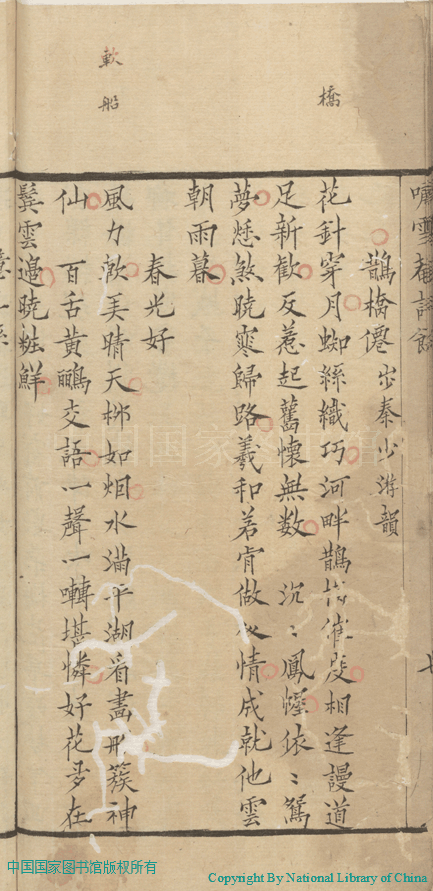 嘯雲
橋
鵲橋僊 步秦少游韻
花針穿月蜘絲織巧河畔鵲 催度相逢謾道
足新歡反惹起舊懷無数 沉〻鳳幄依〻鴛
夢愻煞曉寒歸路羲和若肯做 情成就他雲
朝雨暮
春光好
軟船
風力軟美晴天栁如烟水滿平湖看畫 簇神
仙 百舌黄鸝交語一聲一囀堪憐好花多在
鬓雲邉曉粧鮮
中国国家图书馆版权所有
Copyright By National Library of China